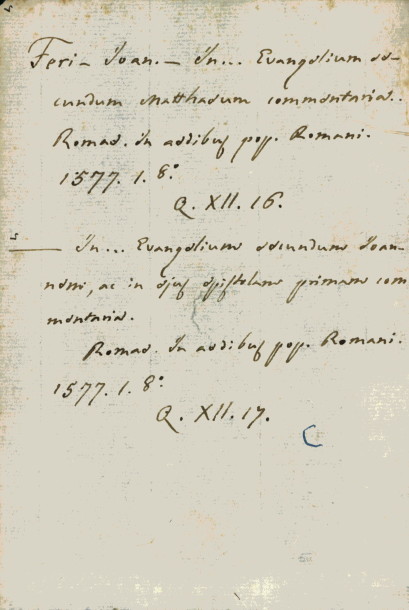 Feri - Joan. - In... Evangelium se-
cundum Matthaeum commentaria.
Romae. In aedibus pop. Romani.
1577. 1. 8.°
Q. XII. 16.
— In... Evangelium secundum Joan-
nem, ac in ejus epistolam primam com
mentaria.
Romae. In aedibus pop. Romani.
1577. 1. 8.°
Q. XII. 17.